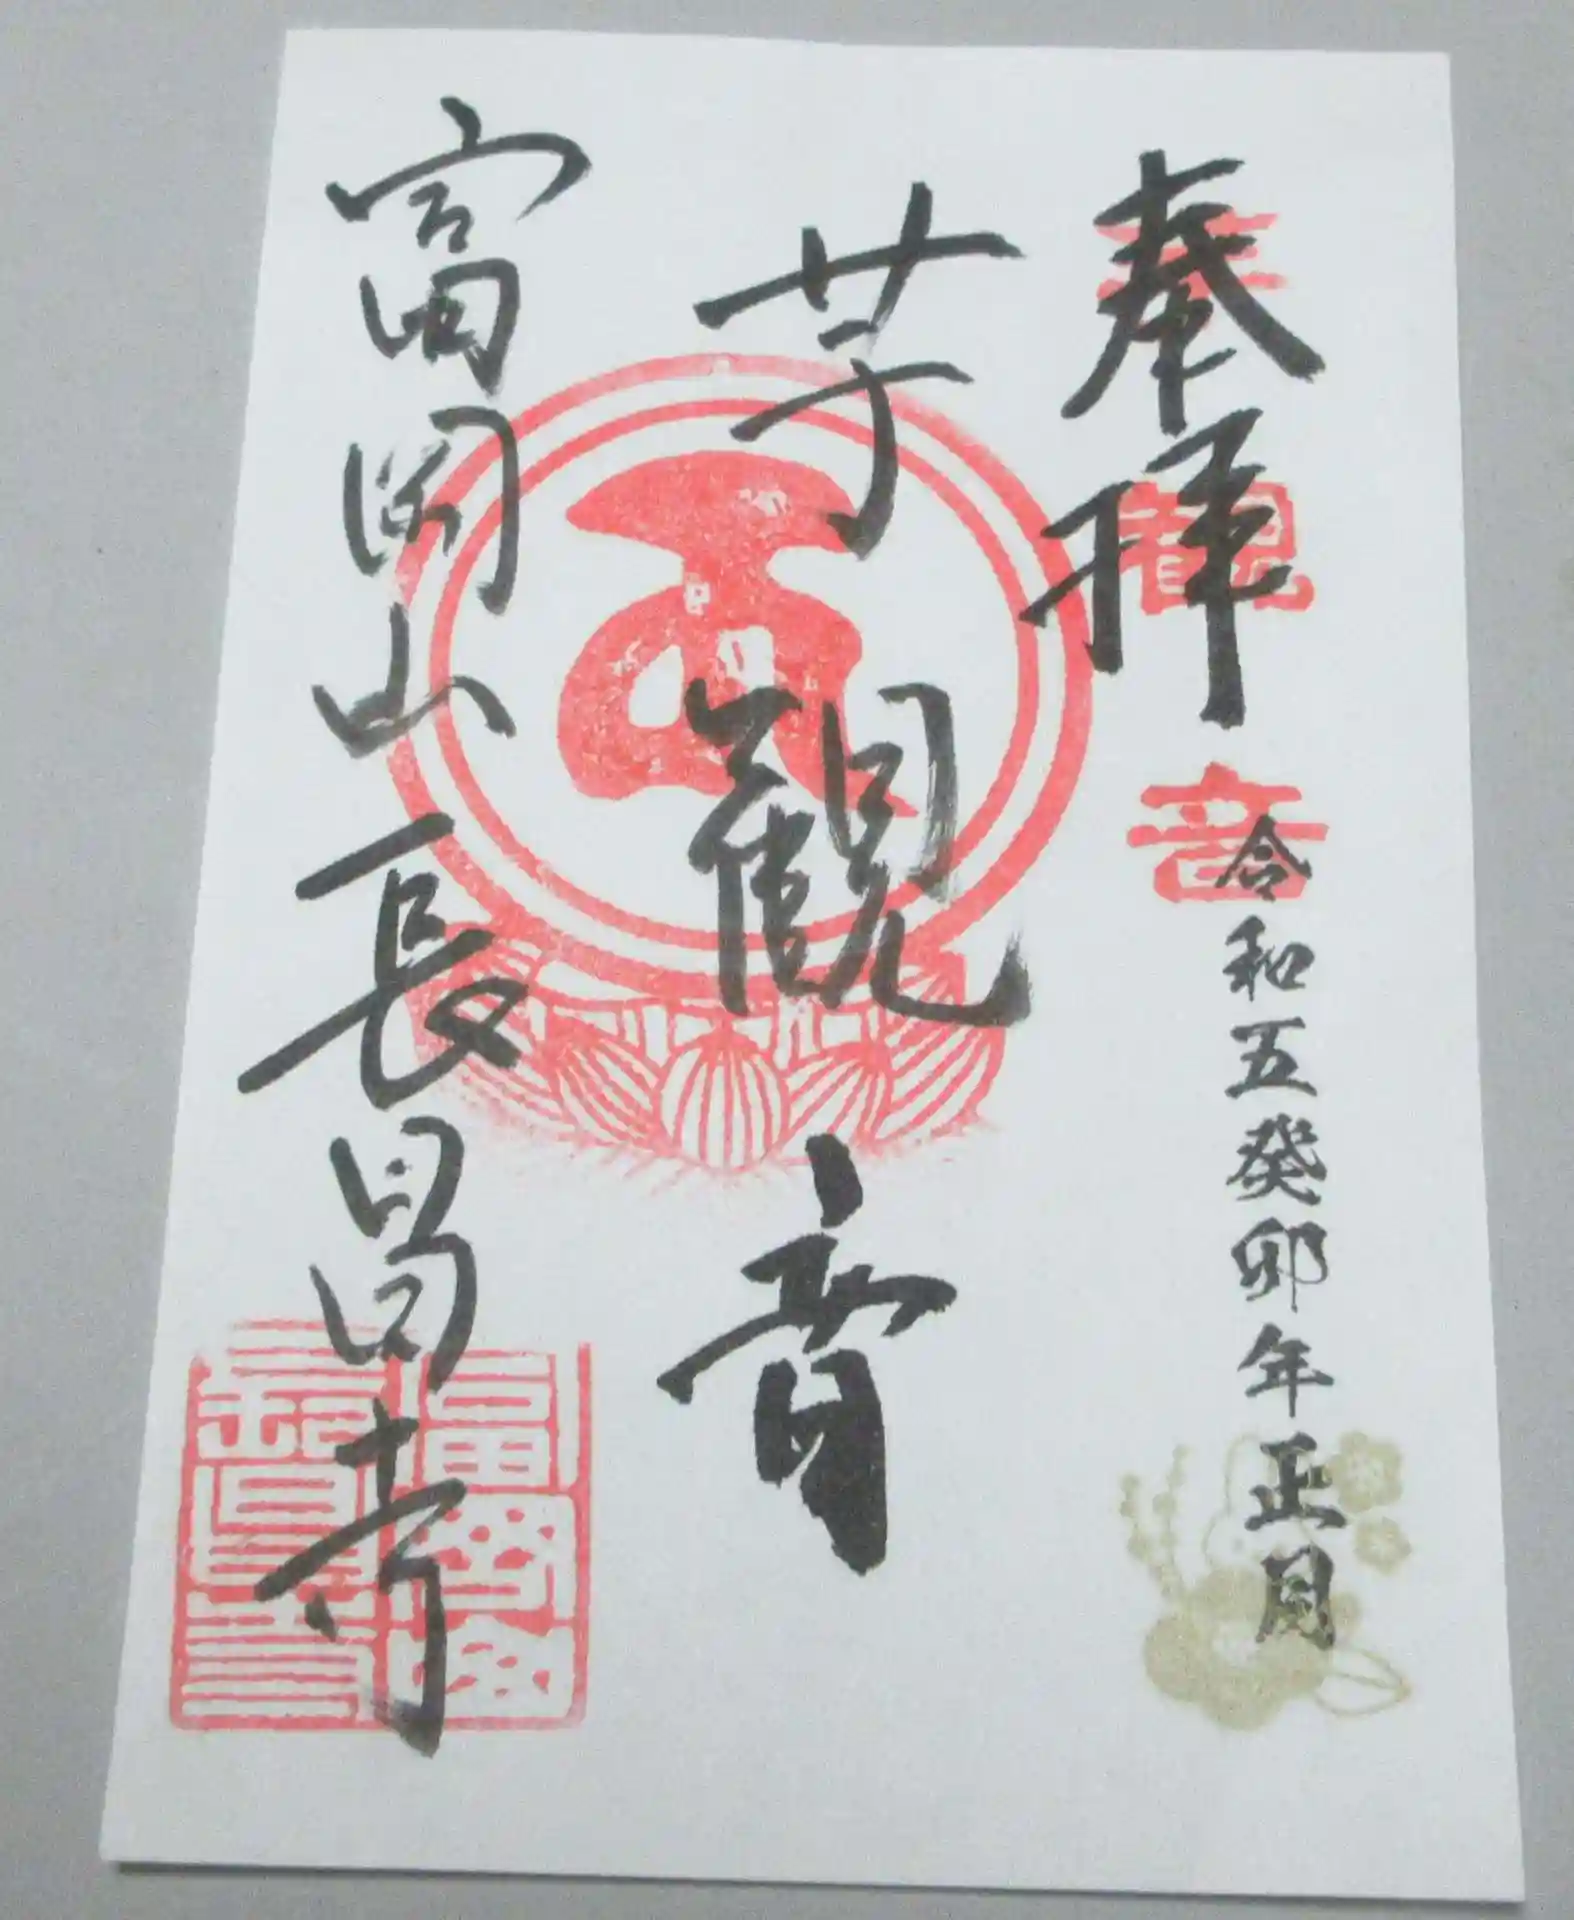 奉拝
観音
令和五癸卯年正月
芋観音
富岡山長昌寺
富岡山
長昌寺